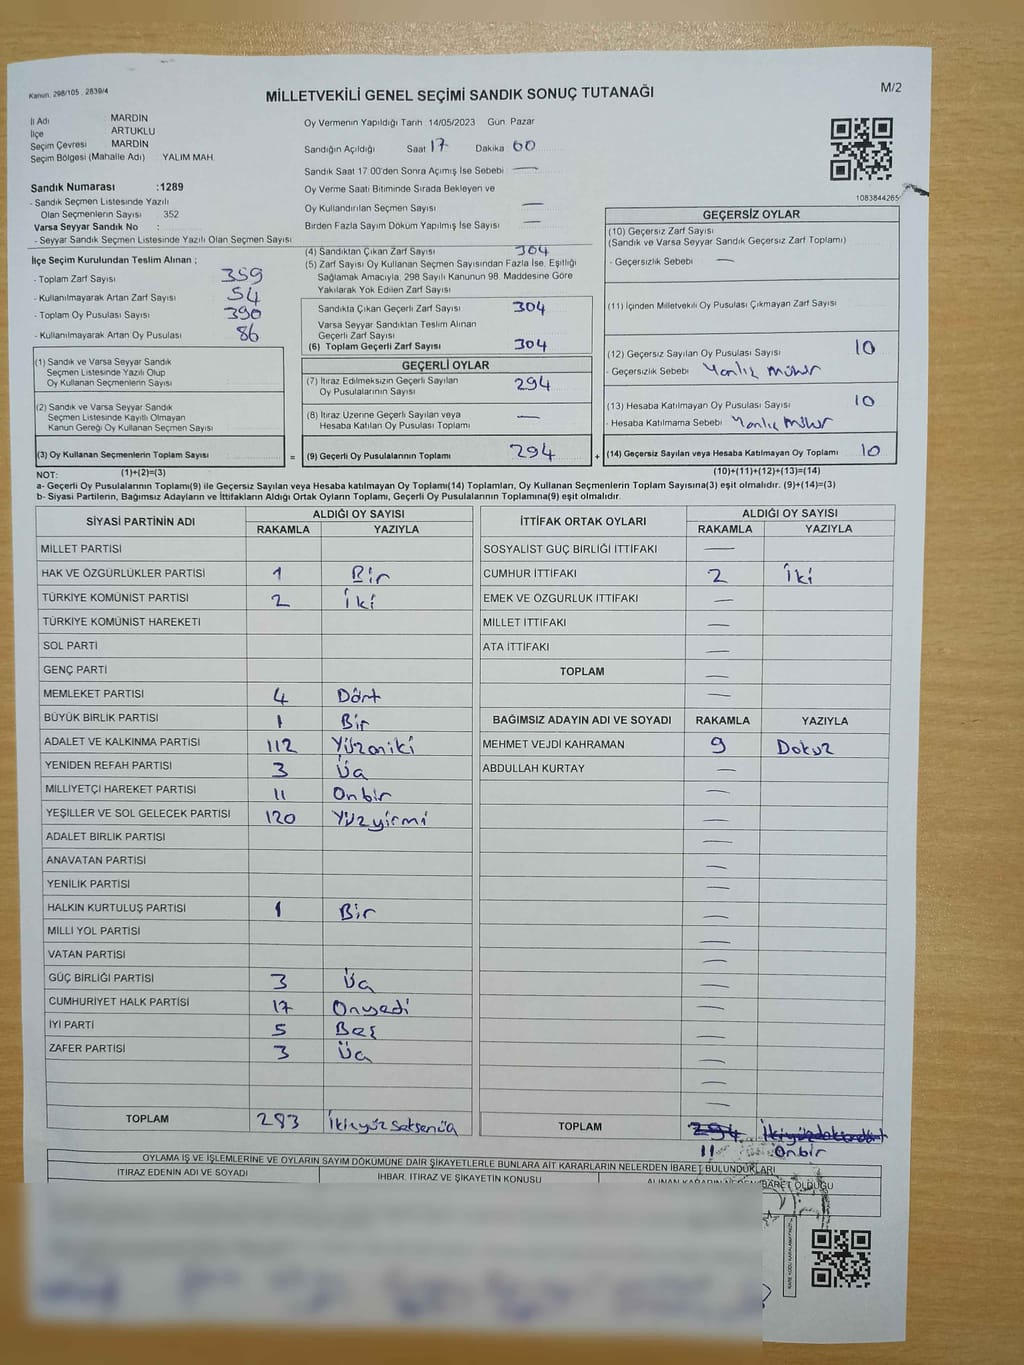 Kanun. 298/105 . 2839/4
MİLLETVEKİLİ GENEL SEÇİMİ SANDIK SONUÇ TUTANAĞI
M/2
İl Adı MARDİN
İlçe ARTUKLU
Seçim Çevresi MARDİN
Seçim Bölgesi (Mahalle Adı) YALIM MAH.
Sandık Numarası :1289
- Sandık Seçmen Listesinde Yazılı
Olan Seçmenlerin Sayısı 352
Varsa Seyyar Sandık No :
- Seyyar Sandık Seçmen Listesinde Yazılı Olan Seçmen Sayısı
Oy Vermenin Yapıldığı Tarih 14/05/2023 Gün Pazar
Sandığın Açıldığı Saat 17 Dakika 00
Sandık Saat 17 00'den Sonra Açımış İse Sebebi —
Oy Verme Saati Bitiminde Sırada Bekleyen ve
Oy Kullandırılan Seçmen Sayısı —
Birden Fazla Sayım Döküm Yapılmış İse Sayısı —
1083844265
İlçe Seçim Kurulundan Teslim Alınan ;
- Toplam Zarf Sayısı 359
- Kullanılmayarak Artan Zarf Sayısı 54
- Toplam Oy Pusulası Sayısı 390
- Kullanılmayarak Artan Oy Pusulası 86
(1) Sandık ve Varsa Seyyar Sandık
Seçmen Listesinde Yazılı Olup
Oy Kullanan Seçmenlerin Sayısı
(2) Sandık ve Varsa Seyyar Sandık
Seçmen Listesinde Kayıtlı Olmayan
Kanun Gereği Oy Kullanan Seçmen Sayısı
(3) Oy Kullanan Seçmenlerin Toplam Sayısı
(1)+(2)=(3)
(4) Sandıktan Çıkan Zarf Sayısı 304
(5) Zarf Sayısı Oy Kullanan Seçmen Sayısından Fazla İse, Eşitliği
Sağlamak Amacıyla, 298 Sayılı Kanunun 98. Maddesine Göre
Yakılarak Yok Edilen Zarf Sayısı
Sandıkta Çıkan Geçerli Zarf Sayısı 304
Varsa Seyyar Sandıktan Teslim Alınan
Geçerli Zarf Sayısı
(6) Toplam Geçerli Zarf Sayısı 304
GEÇERLİ OYLAR
(7) İtiraz Edilmeksizin Geçerli Sayılan
Oy Pusulalarının Sayısı 294
(8) İtiraz Üzerine Geçerli Sayılan veya
Hesaba Katılan Oy Pusulası Toplamı —
= (9) Geçerli Oy Pusulalarının Toplamı 294 +
GEÇERSİZ OYLAR
(10) Geçersiz Zarf Sayısı
(Sandık ve Varsa Seyyar Sandık Geçersiz Zarf Toplamı)
- Geçersizlik Sebebi —
(11) İçinden Milletvekili Oy Pusulası Çıkmayan Zarf Sayısı
(12) Geçersiz Sayılan Oy Pusulası Sayısı 10
- Geçersizlik Sebebi Yanlız Mühür
(13) Hesaba Katılmayan Oy Pusulası Sayısı 10
- Hesaba Katılmama Sebebi Yanlız Mühür
(14) Geçersiz Sayılan veya Hesaba Katılmayan Oy Toplamı 10
(10)+(11)+(12)+(13)=(14)
NOT:
a- Geçerli Oy Pusulalarının Toplamı(9) ile Geçersiz Sayılan veya Hesaba katılmayan Oy Toplamı(14) Toplamları, Oy Kullanan Seçmenlerin Toplam Sayısına(3) eşit olmalıdır. (9)+(14)=(3)
b- Siyasi Partilerin, Bağımsız Adayların ve İttifakların Aldığı Ortak Oyların Toplamı, Geçerli Oy Pusulalarının Toplamına(9) eşit olmalıdır.
SİYASİ PARTİNİN ADI ALDIĞI OY SAYISI
RAKAMLA YAZIYLA
MİLLET PARTİSİ
HAK VE ÖZGÜRLÜKLER PARTİSİ 1 Bir
TÜRKİYE KOMÜNİST PARTİSİ 2 İki
TÜRKİYE KOMÜNİST HAREKETİ
SOL PARTİ
GENÇ PARTİ
MEMLEKET PARTİSİ 4 Dört
BÜYÜK BİRLİK PARTİSİ 1 Bir
ADALET VE KALKINMA PARTİSİ 112 Yüzoniki
YENİDEN REFAH PARTİSİ 3 Üç
MİLLİYETÇİ HAREKET PARTİSİ 11 Onbir
YEŞİLLER VE SOL GELECEK PARTİSİ 120 Yüzyirmi
ADALET BİRLİK PARTİSİ
ANAVATAN PARTİSİ
YENİLİK PARTİSİ
HALKIN KURTULUŞ PARTİSİ 1 Bir
MİLLİ YOL PARTİSİ
VATAN PARTİSİ
GÜÇ BİRLİĞİ PARTİSİ 3 Üç
CUMHURİYET HALK PARTİSİ 17 Onyedi
İYİ PARTİ 5 Beş
ZAFER PARTİSİ 3 Üç
TOPLAM 283 İkiyüzseksenüç
İTTİFAK ORTAK OYLARI ALDIĞI OY SAYISI
RAKAMLA YAZIYLA
SOSYALİST GÜÇ BİRLİĞİ İTTİFAKI —
CUMHUR İTTİFAKI 2 İki
EMEK VE ÖZGÜRLÜK İTTİFAKI —
MİLLET İTTİFAKI —
ATA İTTİFAKI —
TOPLAM —
—
BAĞIMSIZ ADAYIN ADI VE SOYADI RAKAMLA YAZIYLA
MEHMET VEJDİ KAHRAMAN 9 Dokuz
ABDULLAH KURTAY —
TOPLAM 294 İkiyüzdoksandört
11 Onbir
OYLAMA İŞ VE İŞLEMLERİNE VE OYLARIN SAYIM DÖKÜMÜNE DAİR ŞİKAYETLERLE BUNLARA AİT KARARLARIN NELERDEN İBARET BULUNDUKLARI
İTİRAZ EDENİN ADI VE SOYADI İHBAR, İTİRAZ VE ŞİKAYETİN KONUSU ALINAN KARARIN NEDEN İBARET OLDUĞU